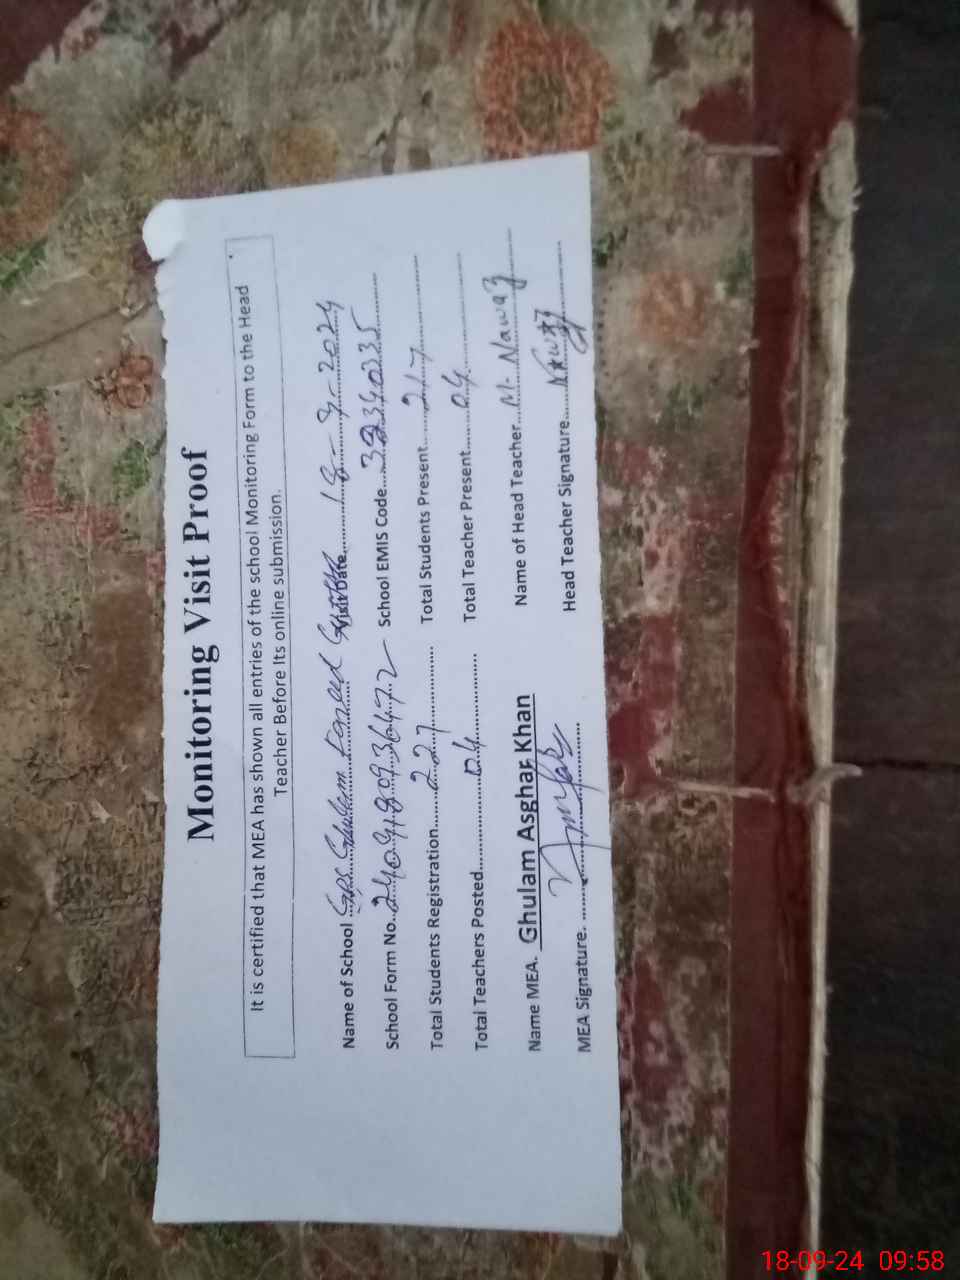 Monitoring Visit Proof
It is certified that MEA has shown all entries of the school Monitoring Form to the Head
Teacher Before Its online submission.
Name of School GPS Ghulam Visit Date 18-9-2024
School Form No. School EMIS Code
Total Students Registration 227 Total Students Present 217
Total Teachers Posted 04 Total Teacher Present 04
Name MEA. Ghulam Asghar Khan Name of Head Teacher M. Nawaz
MEA Signature. Head Teacher Signature Nawaz
18-09-24 09:58